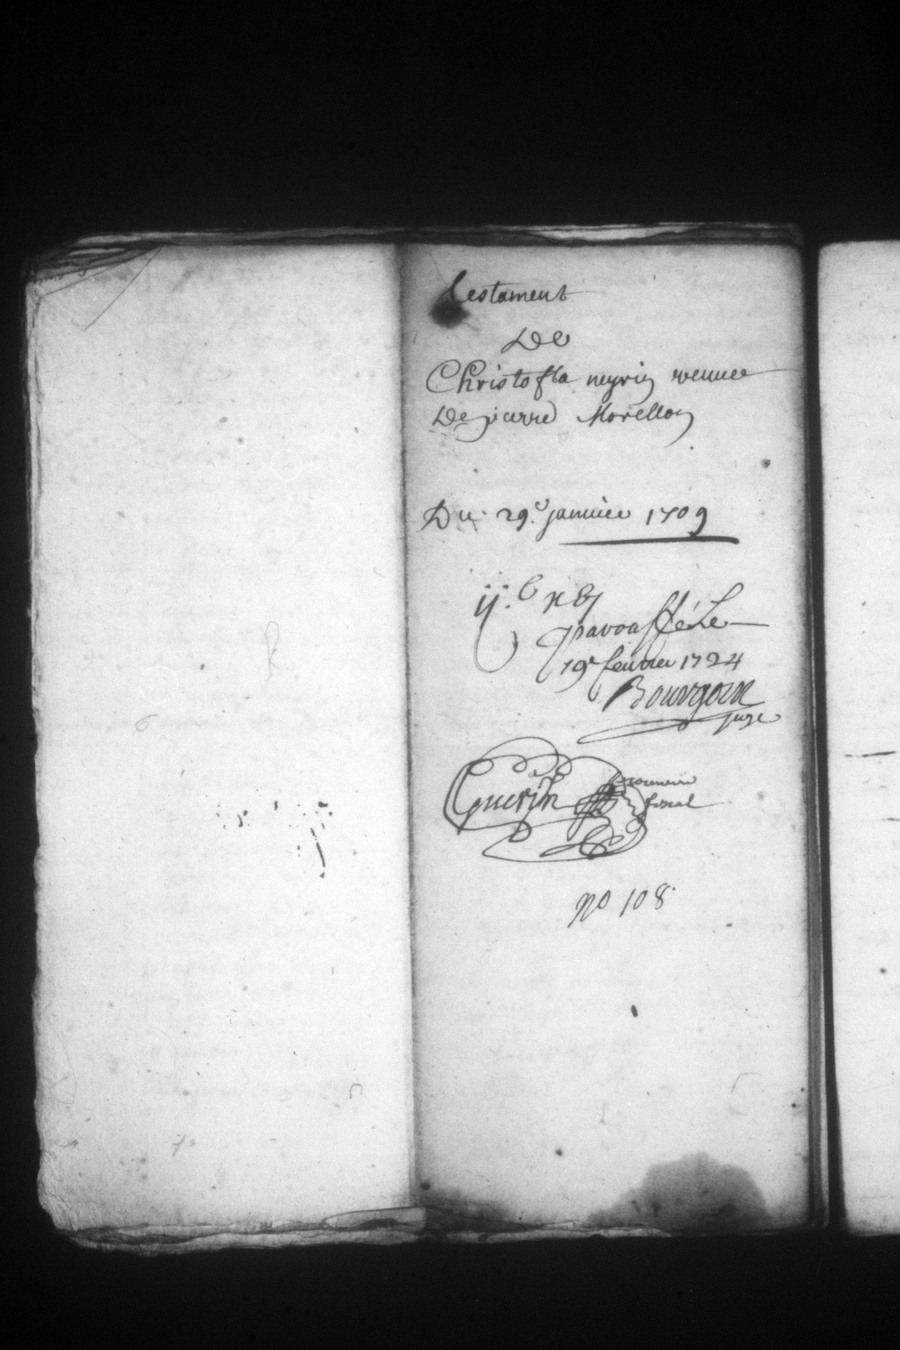 testament
De
Christofla neyriz veuuee
De pierre Morellon
Du 29e januier 1709
ij.e n 8
paraffé Le
19e feurier 1724
Bourgoin
juge
Guerin procureur
fiscal
no 108